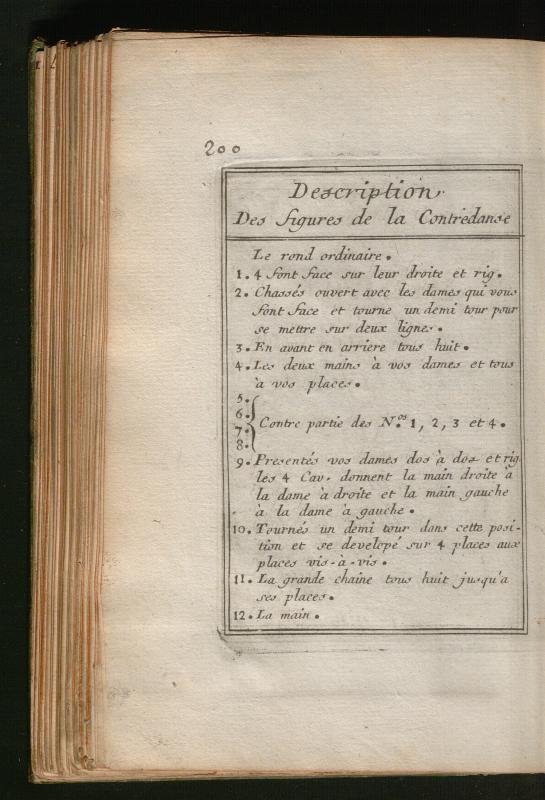 200
Description
Des figures de la Contredanse
Le rond ordinaire.
1. 4 font face sur leur droite et rig.
2. Chassés ouvert avec les dames qui vous
font face et tourne un demi tour pour
se mettre sur deux lignes.
3. En avant en arriere tous huit.
4. Les deux mains à vos dames et tous
à vos places.
5.
6.
7. Contre partie des N.os 1, 2, 3 et 4.
8.
9. Presentés vos dames dos à dos et rig.
les 4 Cav. donnent la main droite à
la dame à droite et la main gauche
à la dame à gauche.
10. Tournés un demi tour dans cette posi-
tion et se developé sur 4 places aux
places vis-à-vis.
11. La grande chaine tous huit jusqu'a
ses places.
12. La main.